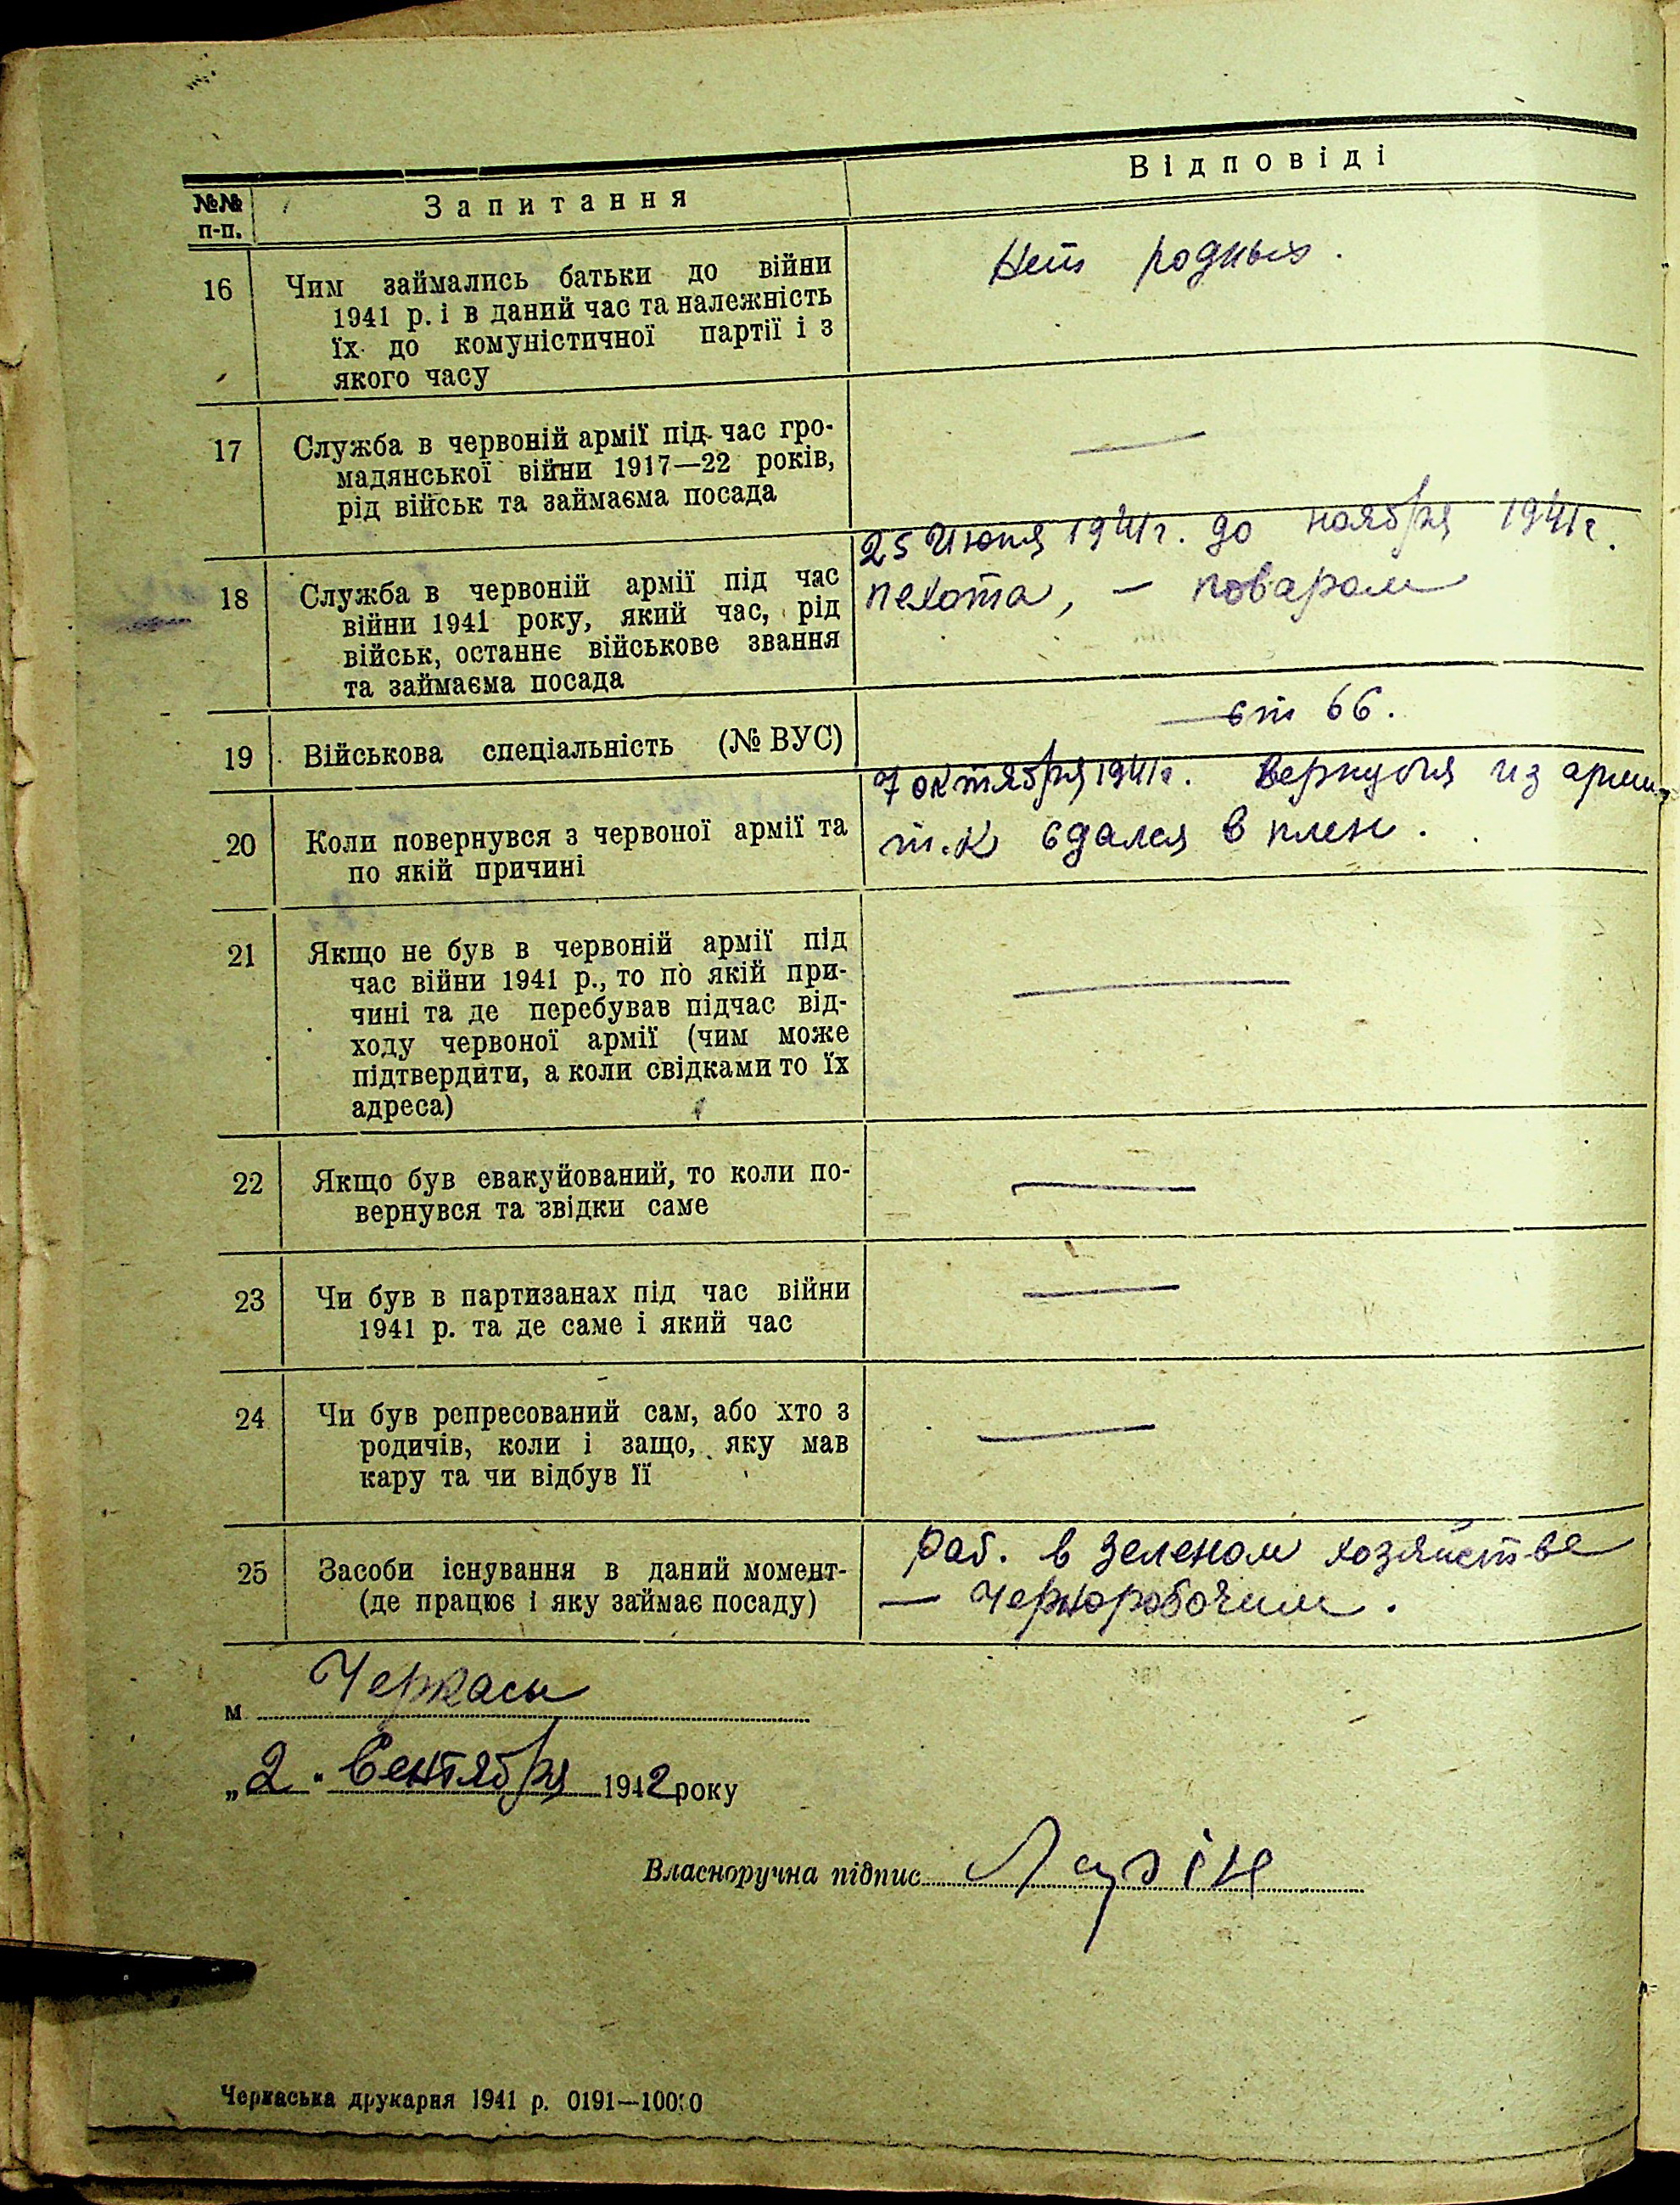 №№ п-п.
Запитання
Відповіді
16
Чим займались батьки до війни
1941 р. і в даний час та належність
їх до комуністичної партії і з
якого часу
Нет родных.
17
Служба в червоній армії під час гро-
мадянської війни 1917—22 років,
рід військ та займаєма посада
—
18
Служба в червоній армії під час
війни 1941 року, який час, рід
військ, останнє військове звання
та займаєма посада
25 Июня 1941г. до ноября 1941г.
пехота, — поваром
19
Військова спеціальність (№ ВУС)
ст 66.
20
Коли повернувся з червоної армії та
по якій причині
7 октября 1941г. Вернулся из армии,
т.к сдался в плен.
21
Якщо не був в червоній армії під
час війни 1941 р., то по якій при-
чині та де перебував підчас від-
ходу червоної армії (чим може
підтвердити, а коли свідками то їх
адреса)
—
22
Якщо був евакуйований, то коли по-
вернувся та звідки саме
—
23
Чи був в партизанах під час війни
1941 р. та де саме і який час
—
24
Чи був репресований сам, або хто з
родичів, коли і защо, яку мав
кару та чи відбув її
—
25
Засоби існування в даний момент-
(де працює і яку займає посаду)
раб. в зеленом хозяйстве
— Чернорабочим.
м. Черкасы
„2" Сентября 1942 року
Власноручна підпис
Черкаська друкарня 1941 р. 0191—10000